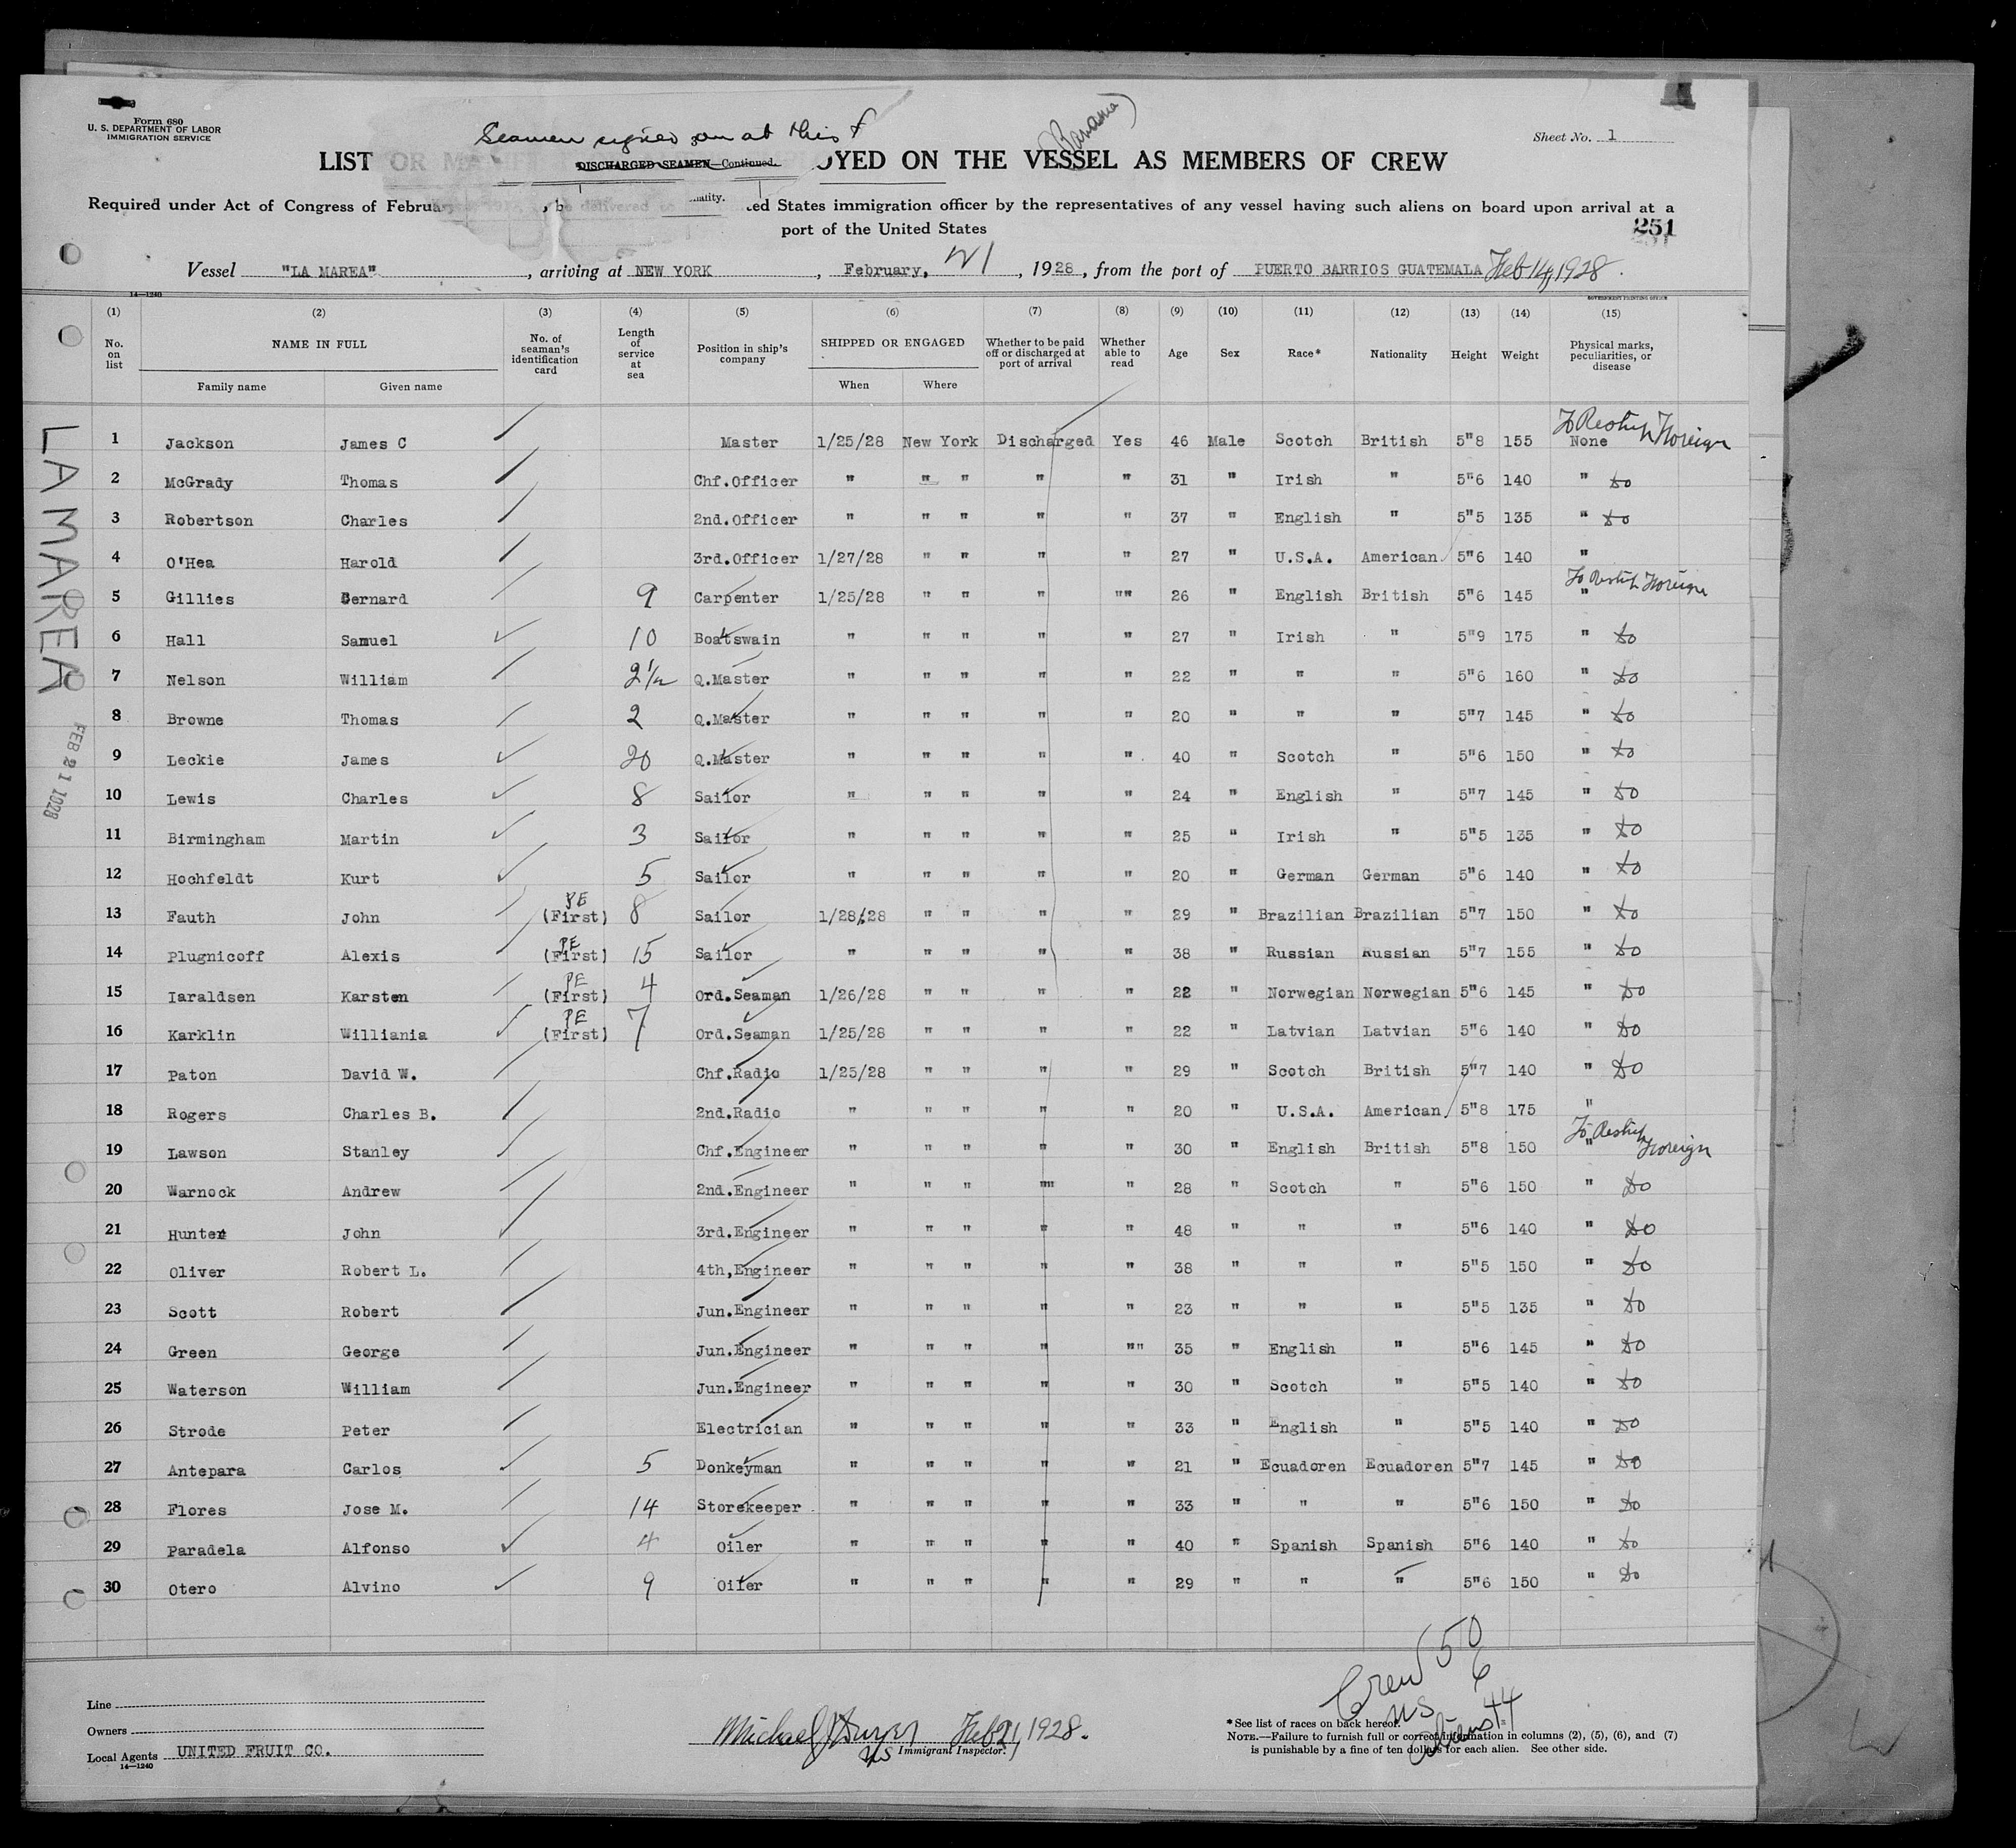 Form 680
U. S. DEPARTMENT OF LABOR
IMMIGRATION SERVICE
Seamen signed on at this
(Banana)
Sheet No. 1
LIST OR MA DISCHARGED SEAMEN—Continued. OYED ON THE VESSEL AS MEMBERS OF CREW
Required under Act of Congress of Februa , b e delivered ...ntity. ted States immigration officer by the representatives of any vessel having such aliens on board upon arrival at a
port of the United States
251
Vessel "LA MAREA" , arriving at NEW YORK , February, 21 , 1928 , from the port of PUERTO BARRIOS GUATEMALA Feb 14, 1928.
14—1240 GOVERNMENT PRINTING OFFICE
(1) (2) (3) (4) (5) (6) (7) (8) (9) (10) (11) (12) (13) (14) (15)
No. on list NAME IN FULL No. of seaman's identification card Length of service at sea Position in ship's company SHIPPED OR ENGAGED Whether to be paid off or discharged at port of arrival Whether able to read Age Sex Race* Nationality Height Weight Physical marks, peculiarities, or disease
Family name Given name When Where
LA MAREA
FEB 21 1928
To Reship Foreign
1 Jackson James C Master 1/25/28 New York Discharged Yes 46 Male Scotch British 5"8 155 None
2 McGrady Thomas Chf.Officer " " " " " 31 " Irish " 5"6 140 " do
3 Robertson Charles 2nd.Officer " " " " " 37 " English " 5"5 135 " do
4 O'Hea Harold 3rd.Officer 1/27/28 " " " " 27 " U.S.A. American 5"6 140 "
To Reship Foreign
5 Gillies Bernard 9 Carpenter 1/25/28 " " " "" 26 " English British 5"6 145 "
6 Hall Samuel 10 Boatswain " " " " " 27 " Irish " 5"9 175 " do
7 Nelson William 2 1/2 Q.Master " " " " " 22 " " " 5"6 160 " do
8 Browne Thomas 2 Q.Master " " " " " 20 " " " 5"7 145 " do
9 Leckie James 20 Q.Master " " " " " 40 " Scotch " 5"6 150 " do
10 Lewis Charles 8 Sailor " " " " " 24 " English " 5"7 145 " do
11 Birmingham Martin 3 Sailor " " " " " 25 " Irish " 5"5 135 " do
12 Hochfeldt Kurt 5 Sailor " " " " " 20 " German German 5"6 140 " do
13 Fauth John PE (First) 8 Sailor 1/28/28 " " " " 29 " Brazilian Brazilian 5"7 150 " do
14 Plugnicoff Alexis PE (First) 15 Sailor " " " " " 38 " Russian Russian 5"7 155 " do
15 Iaraldsen Karsten PE (First) 4 Ord.Seaman 1/26/28 " " " " 22 " Norwegian Norwegian 5"6 145 " do
16 Karklin Williania PE (First) 7 Ord.Seaman 1/25/28 " " " " 22 " Latvian Latvian 5"6 140 " do
17 Paton David W. Chf.Radio 1/25/28 " " " " 29 " Scotch British 5"7 140 " do
18 Rogers Charles B. 2nd.Radio " " " " " 20 " U.S.A. American 5"8 175 "
To Reship Foreign
19 Lawson Stanley Chf.Engineer " " " " " 30 " English British 5"8 150 "
20 Warnock Andrew 2nd.Engineer " " " "" " 28 " Scotch " 5"6 150 " do
21 Hunter John 3rd.Engineer " " " " " 48 " " " 5"6 140 " do
22 Oliver Robert L. 4th,Engineer " " " " " 38 " " " 5"5 150 " do
23 Scott Robert Jun.Engineer " " " " " 23 " " " 5"5 135 " do
24 Green George Jun.Engineer " " " " "" 35 " English " 5"6 145 " do
25 Waterson William Jun.Engineer " " " " " 30 " Scotch " 5"5 140 " do
26 Strode Peter Electrician " " " " " 33 " English " 5"5 140 " do
27 Antepara Carlos 5 Donkeyman " " " " " 21 " Ecuadoren Ecuadoren 5"7 145 " do
28 Flores Jose M. 14 Storekeeper " " " " " 33 " " " 5"6 150 " do
29 Paradela Alfonso 4 Oiler " " " " " 40 " Spanish Spanish 5"6 140 " do
30 Otero Alvino 9 Oiler " " " " " 29 " " " 5"6 150 " do
Crew 50
US 6
Aliens 44
Line
Owners
Local Agents UNITED FRUIT CO.
14—1240
Michael J Dwyer Feb 21, 1928.
US Immigrant Inspector.
*See list of races on back hereof.
NOTE.—Failure to furnish full or correct information in columns (2), (5), (6), and (7)
is punishable by a fine of ten dollars for each alien. See other side.